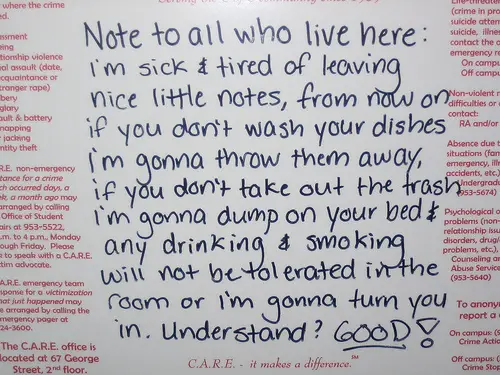 Serving the C of C community since 1984
Note to all who live here:
i'm sick & tired of leaving
nice little notes, from now on
if you don't wash your dishes
i'm gonna throw them away,
if you don't take out the trash
i'm gonna dump on your bed &
any drinking & smoking
will not be tolerated in the
room or i'm gonna turn you
in. Understand? GOOD!
C.A.R.E. - it makes a difference.℠
where the crime
ed.
ssment
ing
tionship violence
al assault (date,
cquaintance or
tranger rape)
bery
glary
ault & battery
napping
jacking
ntity theft
R.E. non-emergency
tance for a crime
ch occurred days, a
k, a month ago may
arranged by calling
Office of Student
airs at 953-5522,
.m. to 4 p.m., Monday
ough Friday. Please
to speak with a C.A.R.E.
tim advocate.
A.R.E. emergency team
sponse for a victimization
at just happened may
e arranged by calling the
mergency pager at
24-3600.
The C.A.R.E. office is
located at 67 George
Street, 2nd floor.
Life-threate
(crime in pro
suicide attem
suicide, illnes
contact the a
emergency re
On campu
Off camp
Non-violent r
difficulties or
contact:
RA and/or
Absence due t
situations (fam
emergency, illn
accidents, etc.)
Undergrad
953-5674)
Psychological o
problems (non-
relationship issu
disorders, drug/
problems, etc.),
Counseling an
Abuse Service
(953-5640)
To anony
report a
On campus: (5
Crime Actio
Off campus: (5
Crime Stop